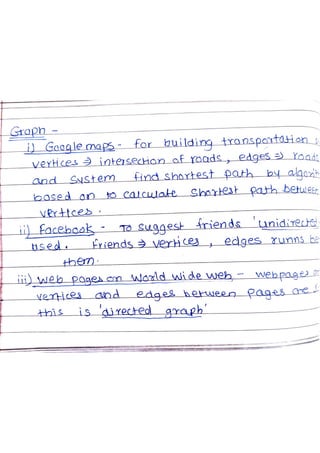 Graph -
i) Google maps - for building transportation
vertices ⇒ intersection of roads, edges ⇒ roads
and system find shortest path by
based on to calculate shortest path between
vertices.
ii) Facebook - To suggest friends
used. Friends ⇒ vertices, edges runns
them.
iii) Web pages on World wide web, - webpages
vertices and edges between pages are
this is 'directed graph'